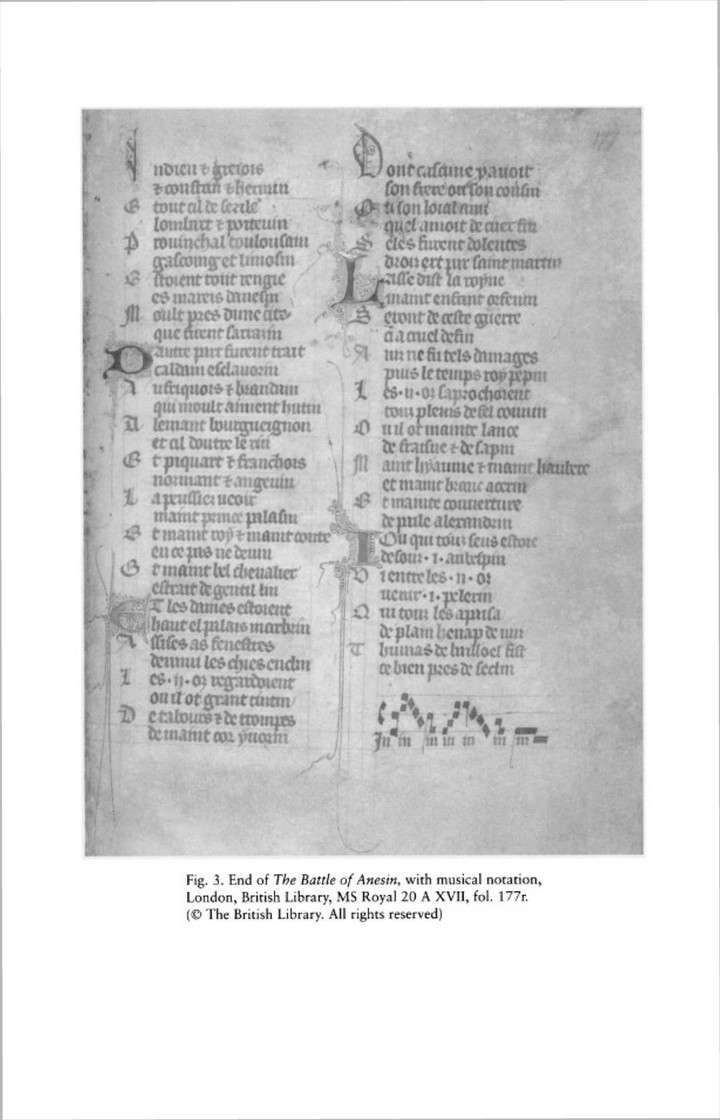 177
Indieu ⁊ gresois
⁊ constan ⁊ hermin
E tout cil de sezile
lombart ⁊ poitevin
P rouinchal toulousain
gascoing et limosin
E stoient tout rengie
es mares danesin
M oult pres dune cite
que furent sarrazin
Dautre part furent trait
esclauorin
⁊ brandain
qui moult aiment hutin
A lemant bourgueignon
et cil doutre le rin
E t piquart ⁊ franchois
normant ⁊ angeuin
L a peussies ueoir
maint prince palasin
E t maint roy ⁊ maint conte
en ce pas ne deuin
E t maint bel cheualier
estrait de gentil lin
Et les dames estoient
haut el palais marbrin
A ssises as fenestres
deuant les chies enclin
L es .ij. oz regardoient
ou il ot grant tintin
D e tabours ⁊ de trompes
de maint cor yuorin
Dont casaine y auoit
son frere ou son cousin
O u son loial ami
quel amoit de cuer fin
S eles furent dolentes
drois ert par saint martin
Lasse dist la royne
maint enfant orfenin
S eront de ceste guerre
A ins ne fu tels damages
puis le temps roy pepin
L es .ii. oz saprochoient
tous pleins de fel couuin
O u il ot mainte lance
de fraisne ⁊ de sapin
M aint hyaume ⁊ maint hauberc
et maint branc acerin
E t mainte couuerture
de paile alexandrin
Iou qui tous seus estoie
desous .i. aubespin
V i entre les .ii. oz
uenir .i. pelerin
Q ui tous les apaisa
de plain henap de uin
T humas de bailloel fist
ce bien pres de seclin
Fig. 3. End of The Battle of Anesin, with musical notation,
London, British Library, MS Royal 20 A XVII, fol. 177r.
(© The British Library. All rights reserved)